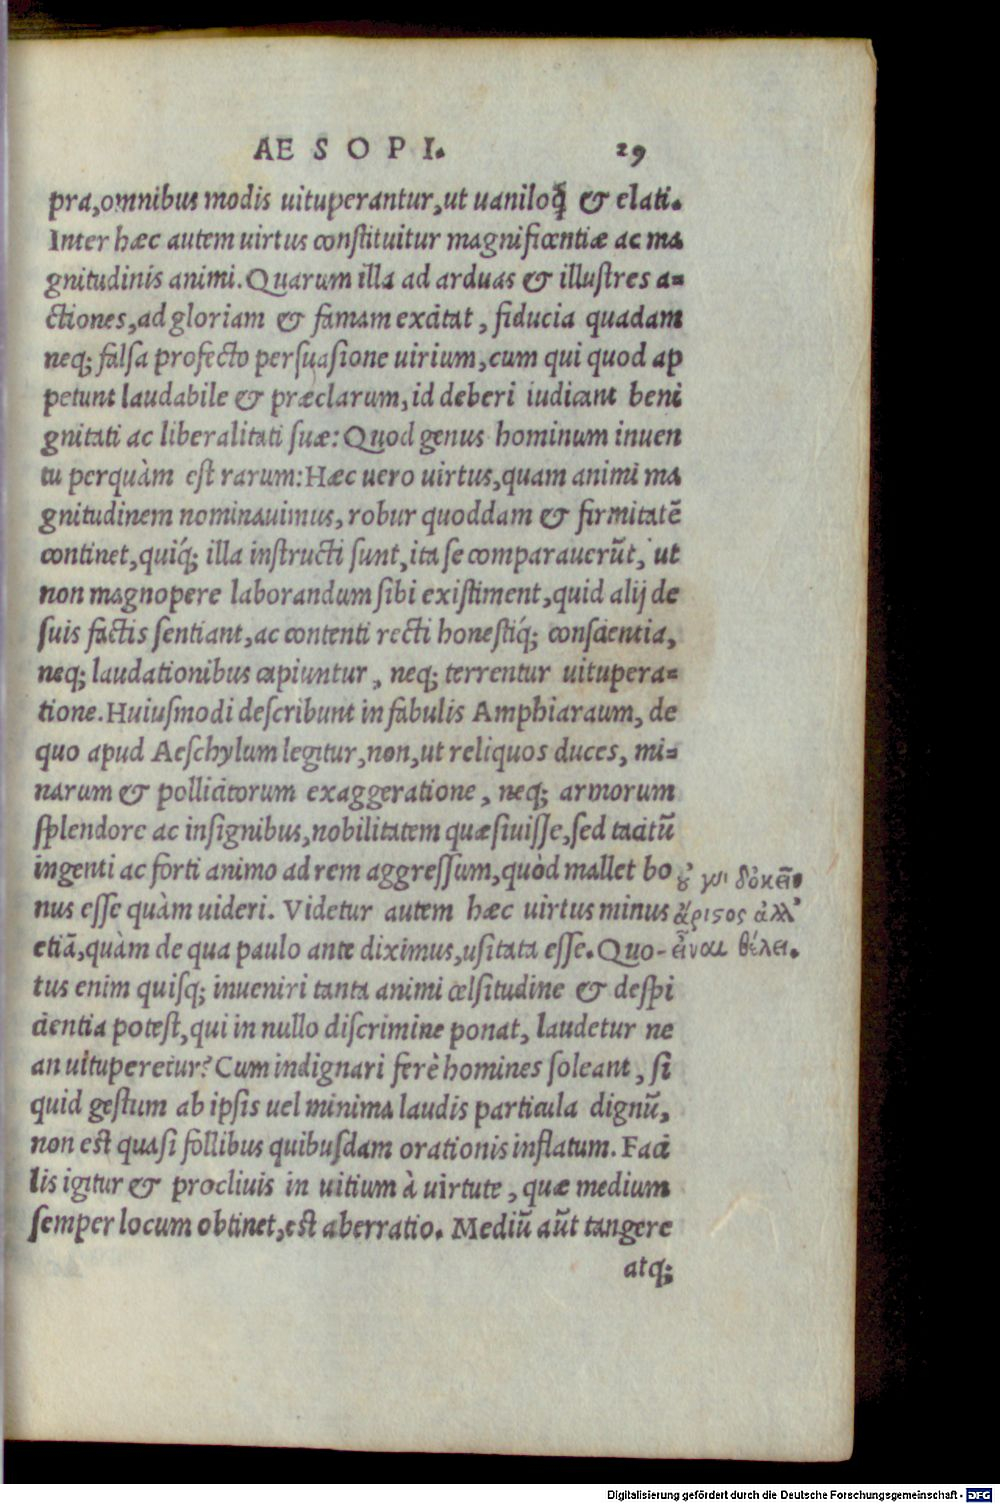 AESOPI. 29
pra,omnibus modis uituperantur,ut uaniloq̃ & elati.
Inter hæc autem uirtus constituitur magnificentiæ ac ma
gnitudinis animi. Quarum illa ad arduas & illustres a-
ctiones,ad gloriam & famam excitat, fiducia quadam
neq; falsa profecto persuasione uirium,cum qui quod ap
petunt laudabile & præclarum,id deberi iudicant beni
gnitati ac liberalitati suæ: Quod genus hominum inuen
tu perquàm est rarum: Hæc uero uirtus,quam animi ma
gnitudinem nominauimus, robur quoddam & firmitatẽ
continet,quiq́; illa instructi sunt,ita se comparauerũt, ut
non magnopere laborandum sibi existiment,quid alij de
suis factis sentiant,ac contenti recti honestiq́; conscientia,
neq; laudationibus capiuntur, neq; terrentur uitupera-
tione. Huiusmodi describunt in fabulis Amphiaraum, de
quo apud Aeschylum legitur,non,ut reliquos duces, mi-
narum & pollicitorum exaggeratione, neq; armorum
splendore ac insignibus,nobilitatem quæsiuisse,sed tacitũ
ingenti ac forti animo ad rem aggressum,quòd mallet bo
nus esse quàm uideri. Videtur autem hæc uirtus minus
etiã,quàm de qua paulo ante diximus,usitata esse. Quo-
tus enim quisq; inueniri tanta animi celsitudine & despi
cientia potest,qui in nullo discrimine ponat, laudetur ne
an uituperetur? Cum indignari ferè homines soleant, si
quid gestum ab ipsis uel minima laudis particula dignũ,
non est quasi follibus quibusdam orationis inflatum. Faci
lis igitur & procliuis in uitium à uirtute, quæ medium
semper locum obtinet,est aberratio. Mediũ aũt tangere
atq;
οὐ γὰρ δοκεῖν
ἄριστος ἀλλ'
εἶναι θέλει.
Digitalisierung gefördert durch die Deutsche Forschungsgemeinschaft - DFG